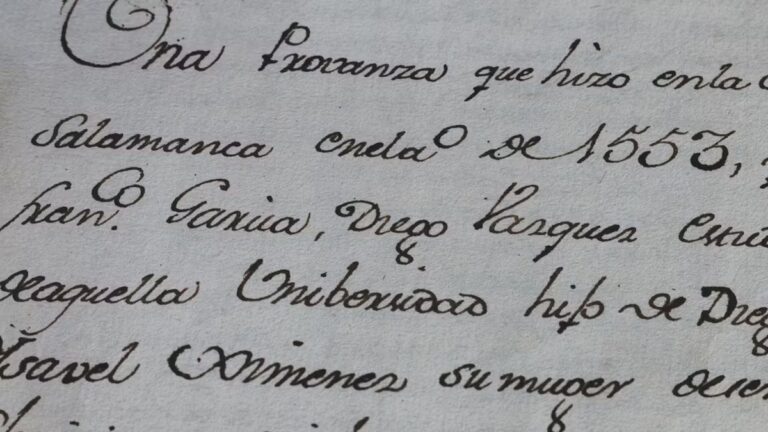 Una Provanza que hizo enla
Salamanca enel aº de 1553,
fran.co Garcia, Diego Vazquez estu
deaquella Unibersidad hijo de Dieg
Ysavel Ximenez su muger